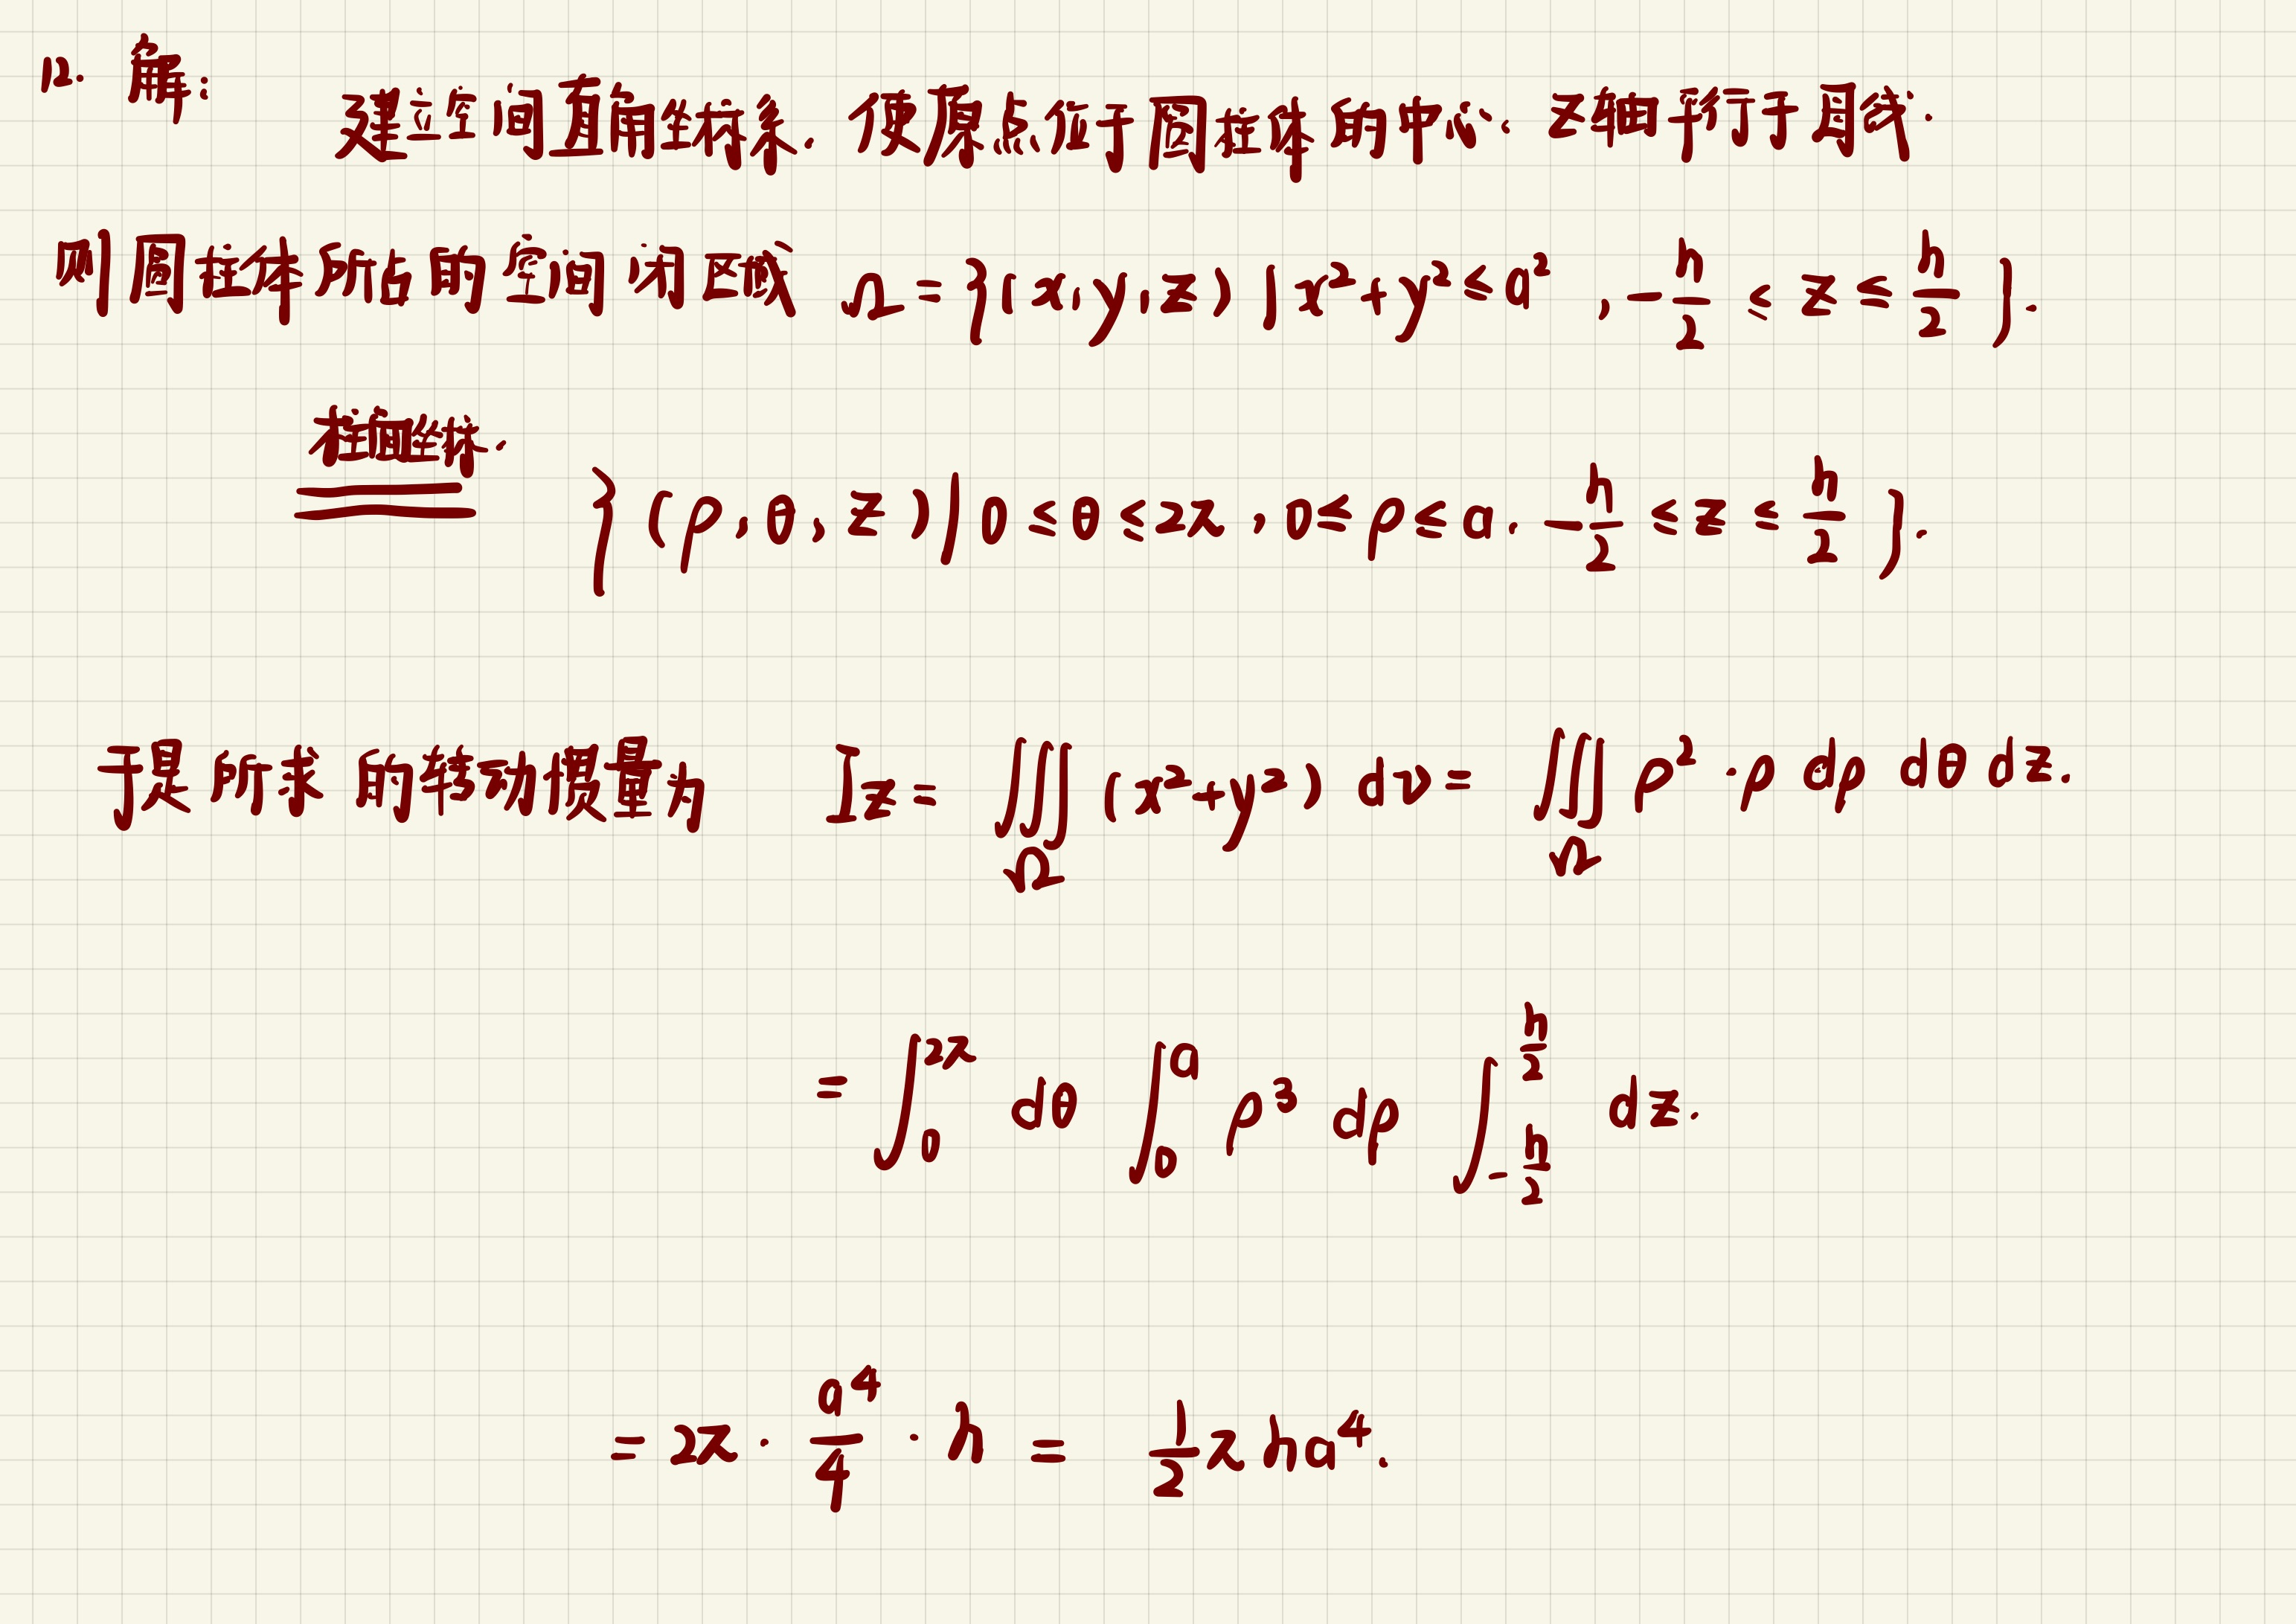 12. 解:
建立空间直角坐标系. 使原点位于圆柱体的中心. z轴平行于母线.
则圆柱体所占的空间闭区域 Ω={(x,y,z)|x²+y²≤a², -h/2 ≤ z ≤ h/2}.
柱面坐标.
{(ρ,θ,z)|0≤θ≤2π, 0≤ρ≤a. -h/2 ≤z≤ h/2}.
于是所求的转动惯量为 Iz= ∭_Ω (x²+y²) dv= ∭_Ω ρ²·ρ dρ dθ dz.
= ∫_0^{2π} dθ ∫_0^a ρ³ dρ ∫_{-h/2}^{h/2} dz.
= 2π · a⁴/4 · h = 1/2 π h a⁴.